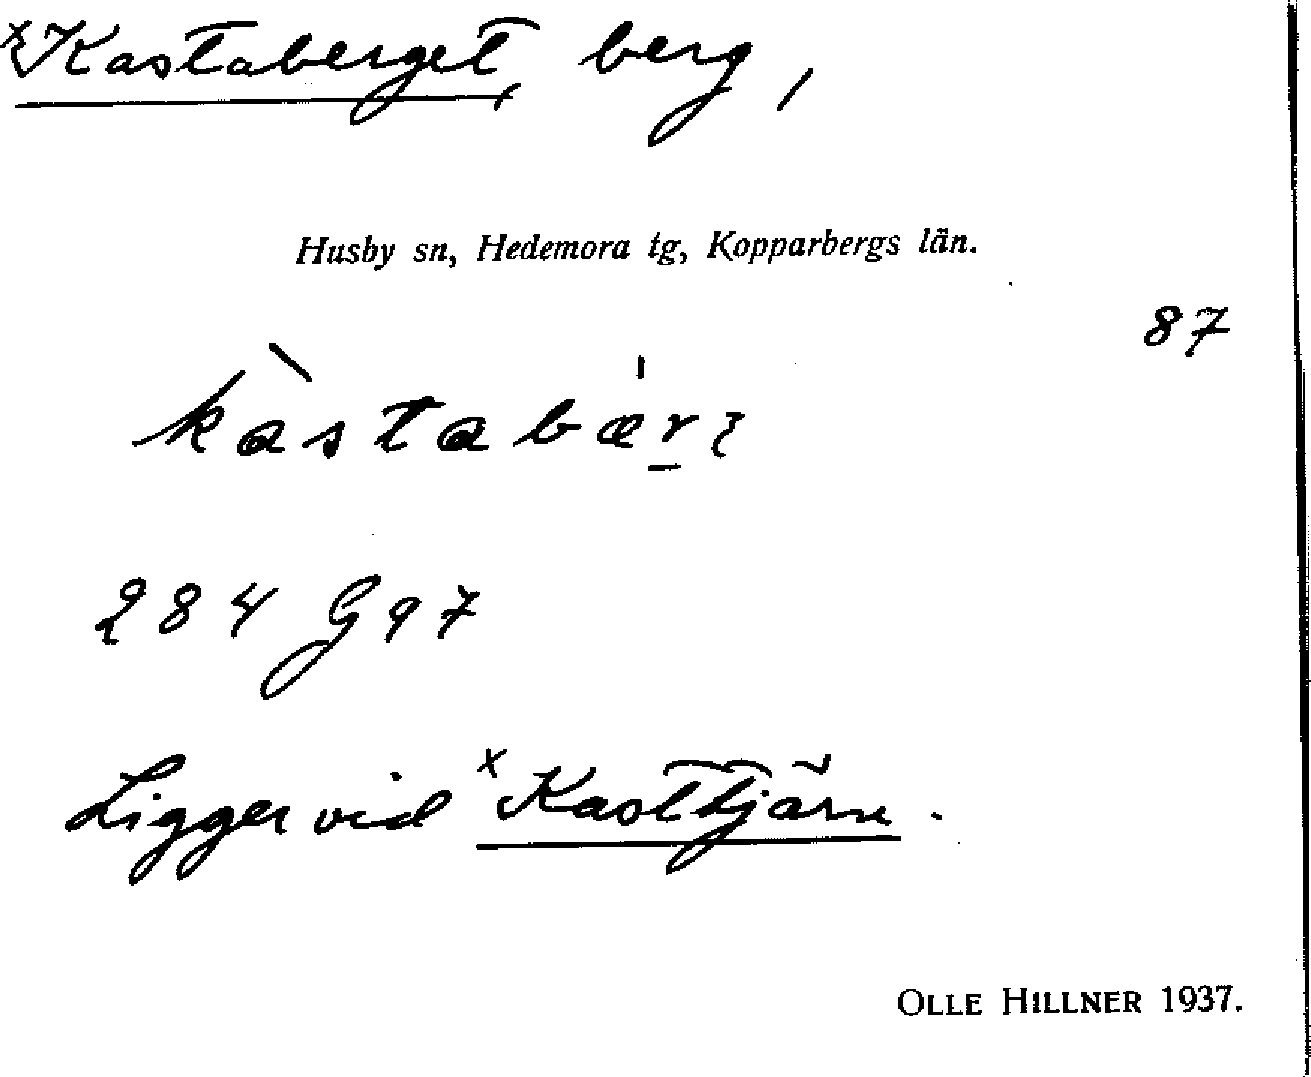 ˣKastaberget, berg,
Husby sn, Hedemora tg, Kopparbergs län.
87
284 G 97
Ligger vid ˣKasttjärn.
OLLE HILLNER 1937.